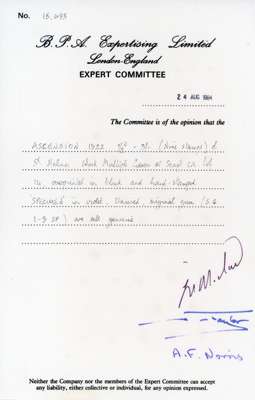 No. 16,493
B. P. A. Expertising Limited
London-England
EXPERT COMMITTEE
24 AUG 1984
The Committee is of the opinion that the
ASCENSION 1922 (Nine stamps) of
St. Helena
overprinted in black and hand-stamped
SPECIMEN in violet, original gum (S.G.
1-9 SP) are all genuine
A.F. Norris
Neither the Company nor the members of the Expert Committee can accept
any liability, either collective or individual, for any opinion expressed.